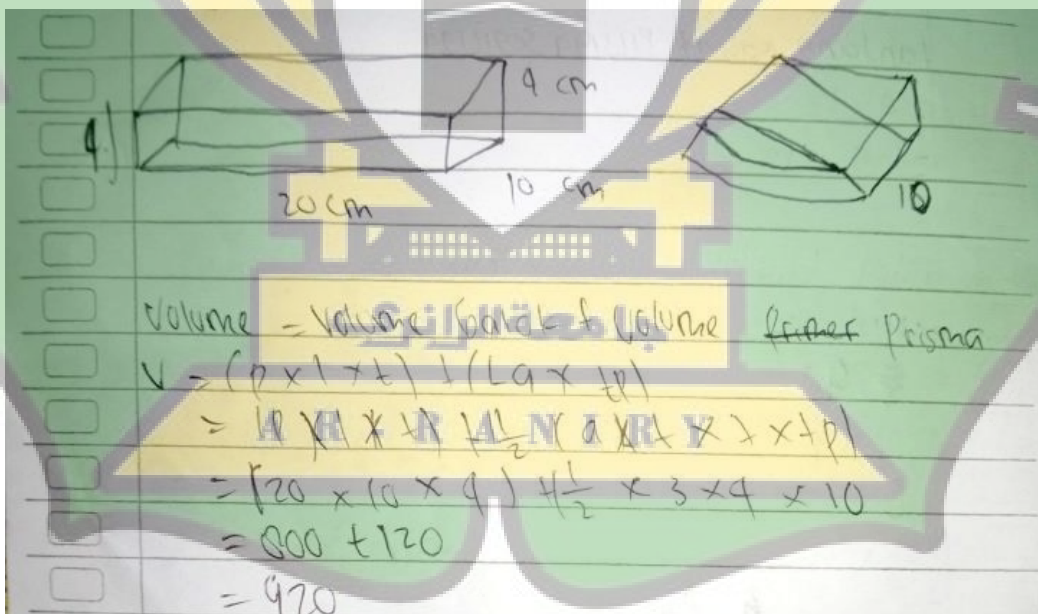 4
4 cm
20 cm
10 cm
10
Volume = Volume balok + Volume Prisma
V = (p x l x t) + (La x tp)
= (p x l x t) + (1/2 (a x t) x tp)
= (20 x 10 x 4) + 1/2 x 3 x 4 x 10
= 800 + 120
= 920
جامعة الرانري
AR - RANIRY